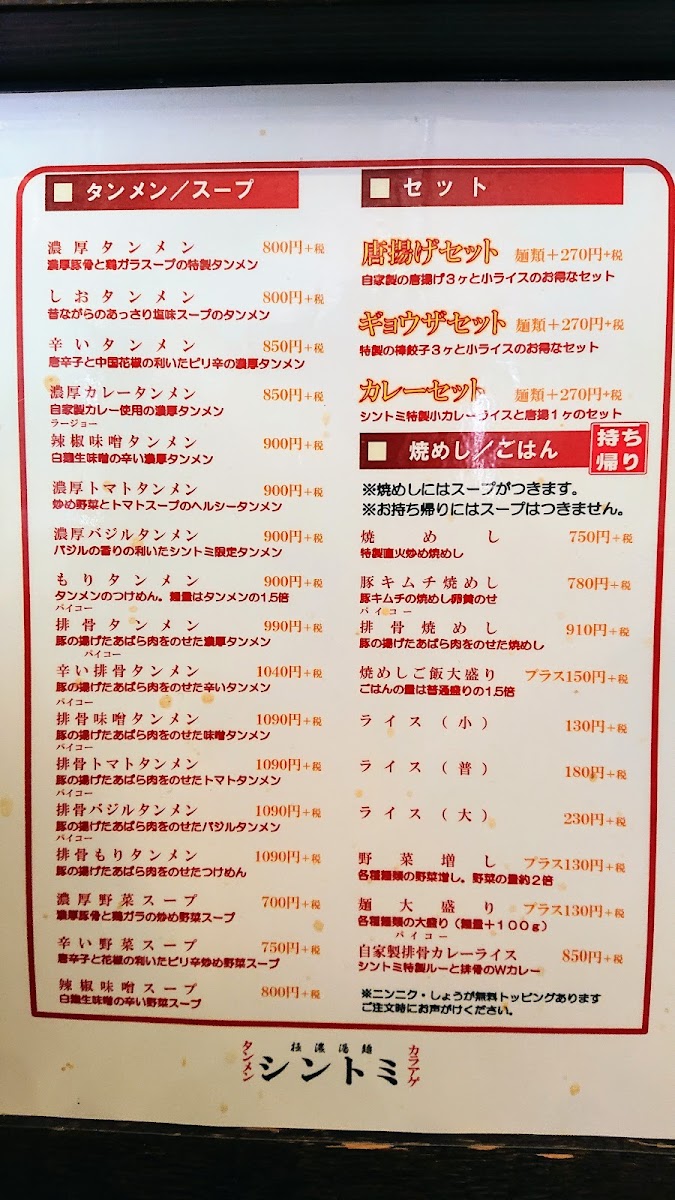 タンメン／スープ
濃厚タンメン 800円+税
濃厚豚骨と鶏ガラスープの特製タンメン
しおタンメン 800円+税
昔ながらのあっさり塩味スープのタンメン
辛いタンメン 850円+税
唐辛子と中国花椒の利いたピリ辛の濃厚タンメン
濃厚カレータンメン 850円+税
自家製カレー使用の濃厚タンメン
ラージョー
辣椒味噌タンメン 900円+税
白麹生味噌の辛い濃厚タンメン
濃厚トマトタンメン 900円+税
炒め野菜とトマトスープのヘルシータンメン
濃厚バジルタンメン 900円+税
バジルの香りの利いたシントミ限定タンメン
もりタンメン 900円+税
タンメンのつけめん。麺量はタンメンの1.5倍
パイコー
排骨タンメン 990円+税
豚の揚げたあばら肉をのせた濃厚タンメン
パイコー
辛い排骨タンメン 1040円+税
豚の揚げたあばら肉をのせた辛いタンメン
パイコー
排骨味噌タンメン 1090円+税
豚の揚げたあばら肉をのせた味噌タンメン
パイコー
排骨トマトタンメン 1090円+税
豚の揚げたあばら肉をのせたトマトタンメン
パイコー
排骨バジルタンメン 1090円+税
豚の揚げたあばら肉をのせたバジルタンメン
パイコー
排骨もりタンメン 1090円+税
豚の揚げたあばら肉をのせたつけめん
濃厚野菜スープ 700円+税
濃厚豚骨と鶏ガラの炒め野菜スープ
辛い野菜スープ 750円+税
唐辛子と花椒の利いたピリ辛炒め野菜スープ
辣椒味噌スープ 800円+税
白麹生味噌の辛い野菜スープ
セット
唐揚げセット 麺類+270円+税
自家製の唐揚げ３ヶと小ライスのお得なセット
ギョウザセット 麺類+270円+税
特製の棒餃子３ヶと小ライスのお得なセット
カレーセット 麺類+270円+税
シントミ特製小カレーライスと唐揚１ヶのセット
焼めし／ごはん
持ち
帰り
※焼めしにはスープがつきます。
※お持ち帰りにはスープはつきません。
焼めし 750円+税
特製直火炒め焼めし
豚キムチ焼めし 780円+税
豚キムチの焼めし卵黄のせ
パイコー
排骨焼めし 910円+税
豚の揚げたあばら肉をのせた焼めし
焼めしご飯大盛り プラス150円+税
ごはんの量は普通盛りの1.5倍
ライス（小） 130円+税
ライス（普） 180円+税
ライス（大） 230円+税
野菜増し プラス130円+税
各種麺類の野菜増し。野菜の量約２倍
麺大盛り プラス130円+税
各種麺類の大盛り（麺量＋１００ｇ）
パイコー
自家製排骨カレーライス 850円+税
シントミ特製ルーと排骨のWカレー
※ニンニク・しょうが無料トッピングあります
ご注文時にお声がけください。
タンメン
極濃湯麺
シントミ
カラアゲ